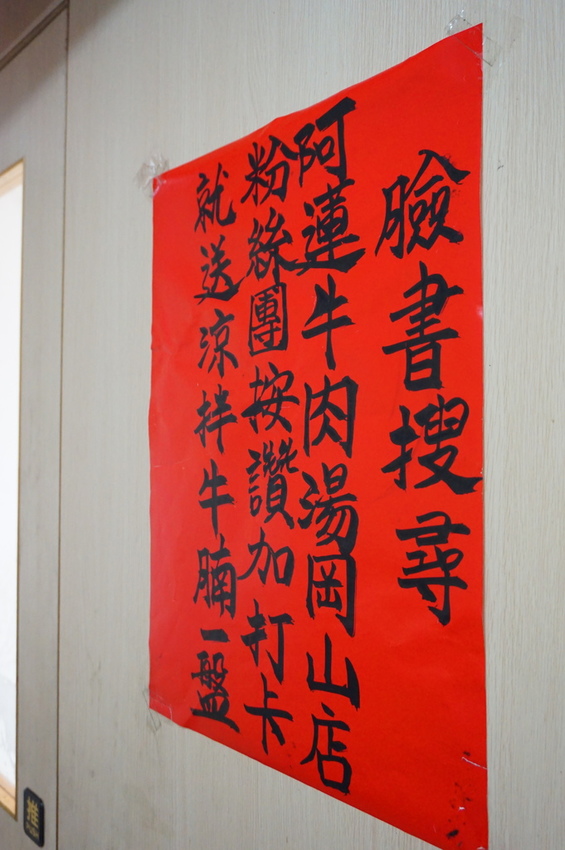 臉書搜尋
阿蓮牛肉湯岡山店
粉絲團按讚加打卡
就送涼拌牛腩一盤
推